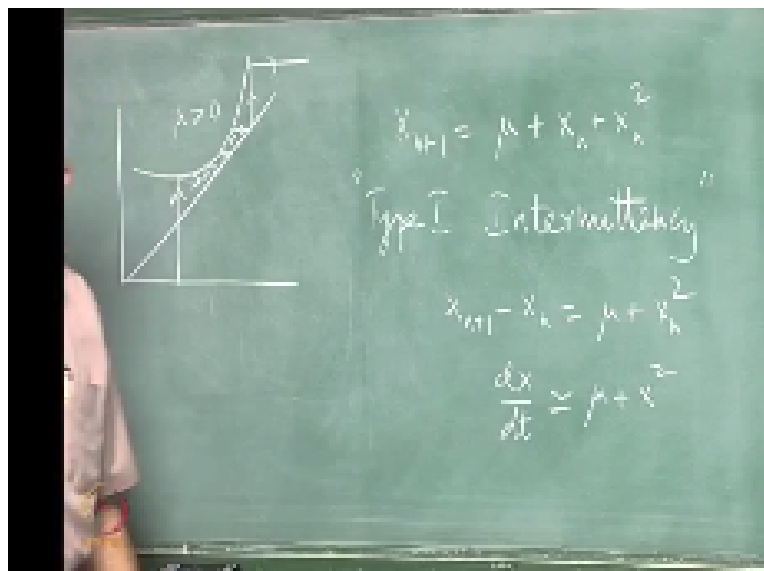 μ>0
x_{n+1} = μ + x_n + x_n^2
"Type I Intermittency"
x_{n+1} - x_n = μ + x_n^2
dx/dt ≃ μ + x^2